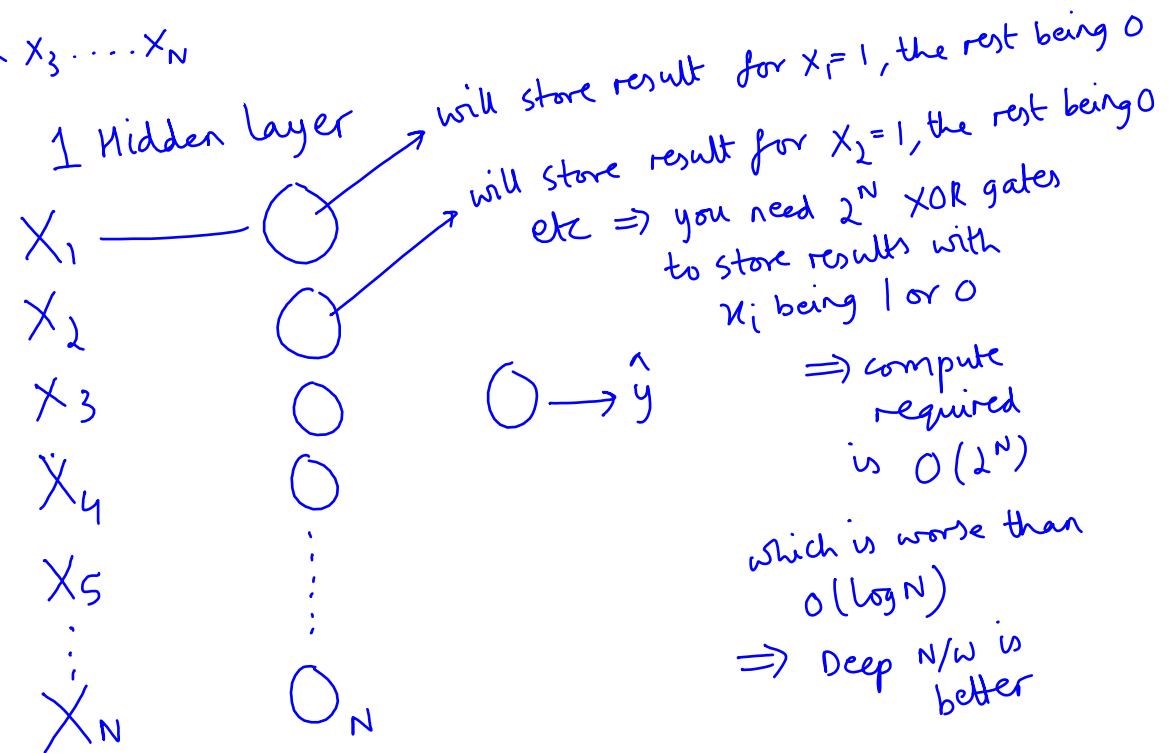 X₃ .... X_N
1 Hidden layer
will store result for X₁=1, the rest being 0
will store result for X₂=1, the rest being 0
etc ⇒ you need 2^N XOR gates
to store results with
xᵢ being 1 or 0
X₁
X₂
X₃
X₄
X₅
X_N
N
ŷ
⇒ compute
required
is O(2^N)
which is worse than
O(log N)
⇒ Deep N/W is
better